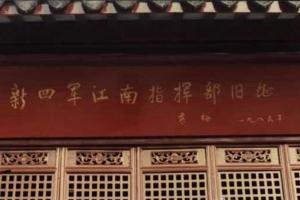 新四军江南指挥部旧址
一九八五年